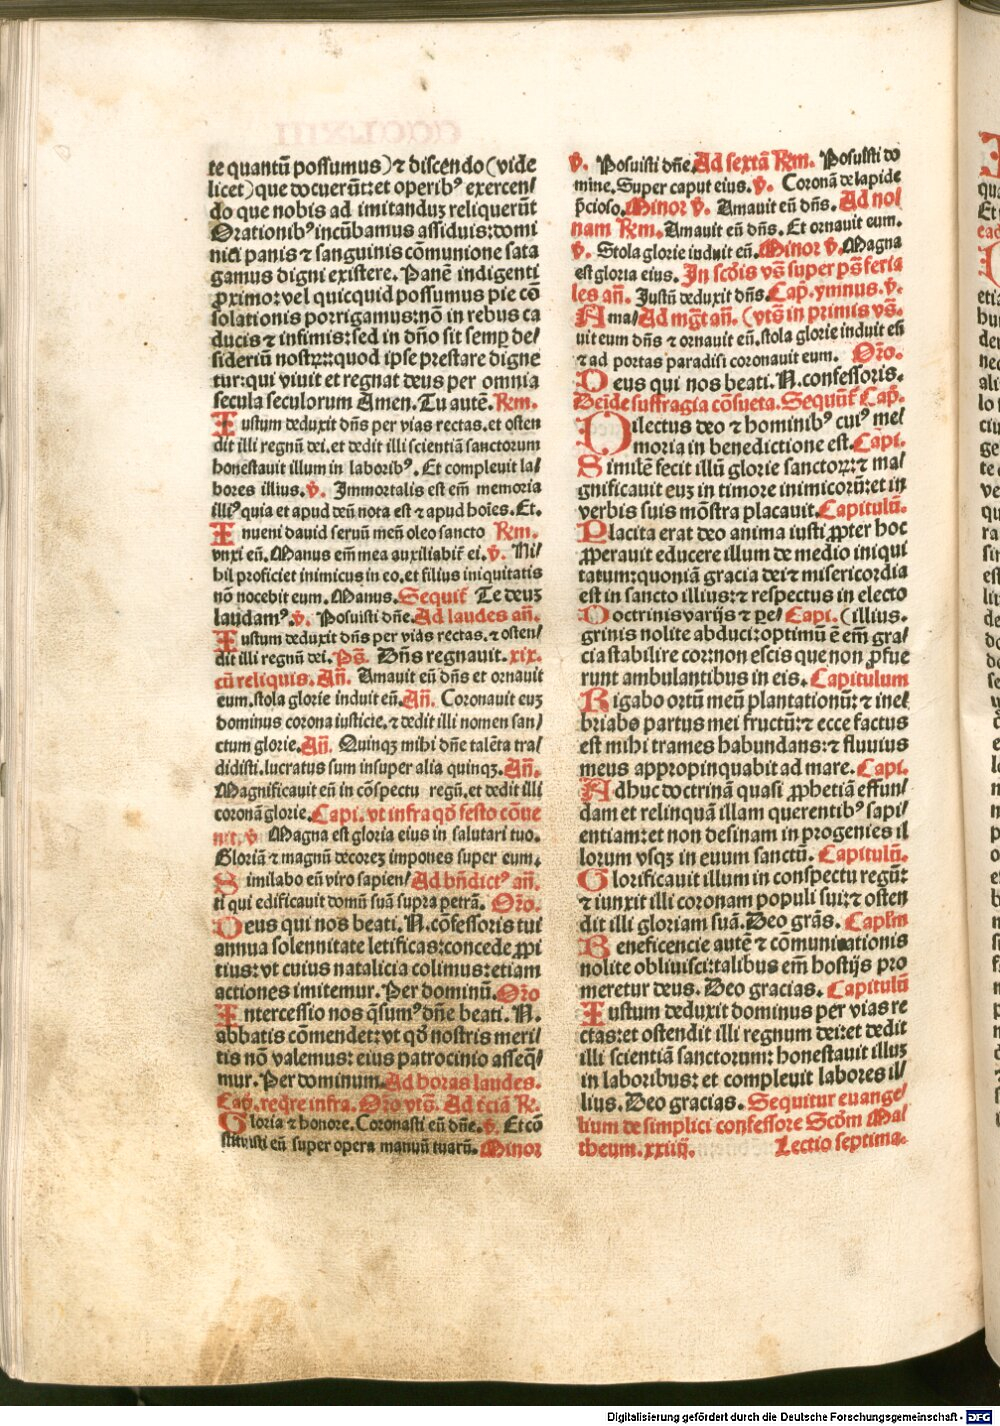 te quantū possumus) ⁊ discendo (vide
licet) que docuerūt: et operibꝰ exercen/
do que nobis ad imitanduꝫ reliquerūt
Orationibꝰ incūbamus assiduis: domi
nici panis ⁊ sanguinis cōmunione sata
gamus digni existere. Panē indigenti
ꝓximo: vel quicquid possumus pie cō
solationis porrigamus: nō in rebus ca
ducis ⁊ infimis: sed in dn̄o sit semꝑ de/
sideriū nostrꝝ: quod ipse prestare digne
tur: qui viuit et regnat deus per omnia
secula seculorum Amen. Tu autē. Rm.
Iustum deduxit dn̄s per vias rectas. et osten
dit illi regnū dei. et dedit illi scientiā sanctorum
honestauit illum in laboribꝰ. Et compleuit la/
bores illius. v̄. Immortalis est em̄ memoria
illiꝰ quia et apud deū nota est ⁊ apud hoīes. Et.
Inueni dauid seruū meū oleo sancto Rm.
vnxi eū. Manus em̄ mea auxiliabit̄ ei. v̄. Ni/
hil proficiet inimicus in eo. et filius iniquitatis
nō nocebit eum. Manus. Sequit̄ Te deuꝫ
laudamꝰ. v̄. Posuisti dn̄e. Ad laudes an̄.
Iustum deduxit dn̄s per vias rectas. ⁊ osten/
dit illi regnū dei. Ps̄. Dn̄s regnauit. xix.
cū reliquis. An̄. Amauit eū dn̄s et ornauit
eum. stola glorie induit eū. An̄. Coronauit euꝫ
dominus corona iusticie. ⁊ dedit illi nomen san/
ctum glorie. An̄. Quinqꝫ mihi dn̄e talēta tra/
didisti. lucratus sum insuper alia quinqꝫ. An̄.
Magnificauit eū in cōspectu regū. et dedit illi
coronā glorie. Capi. vt infra qō festo cōue
nit. v̄ Magna est gloria eius in salutari tuo.
Gloriā ⁊ magnū decoreꝫ impones super eum.
Similabo eū viro sapien/ Ad bn̄dictꝰ an̄.
ti qui edificauit domū suā supra petrā. Or̄o.
Deus qui nos beati. N. cōfessoris tui
annua solennitate letificas: concede ꝓpi
tius: vt cuius natalicia colimus: etiam
actiones imitemur. Per dominū. Or̄o
Intercessio nos q̄sumꝰ dn̄e beati. N.
abbatis cōmendet: vt qō nostris meri/
tis nō valemus: eius patrocinio asseq̄/
mur. Per dominum. Ad horas laudes.
Cap̄. req̄re infra. Or̄o vts̄. Ad t̄ciā R̄.
Gloria ⁊ honore. Coronasti eū dn̄e. v̄. Et cō
stituisti eū super opera manuū tuarū. Minor
v̄. Posuisti dn̄e. Ad sextā Rm. Posuisti do
mine. Super caput eius. v̄. Coronā de lapide
p̄cioso. Minor v̄. Amauit eū dn̄s. Ad no/
nam Rm. Amauit eū dn̄s. Et ornauit eum.
v̄. Stola glorie induit eū. Minor v̄. Magna
est gloria eius. In scd̄is vs̄ super ps̄ feria
les an̄. Iustū deduxit dn̄s. Cap̄. ymnus. v̄.
Ama/ Ad mḡt an̄. (vts̄ in primis vs̄.
uit eum dn̄s ⁊ ornauit eū. stola glorie induit eū
⁊ ad portas paradisi coronauit eum. Or̄o.
Deus qui nos beati. N. confessoris.
Deīde suffragia cōsueta. Sequūt̄ Cap̄.
Dilectus deo ⁊ hominibꝰ cuiꝰ me/
moria in benedictione est. Capi.
Similē fecit illū glorie sanctoꝝ: ⁊ ma/
gnificauit euꝫ in timore inimicorū: et in
verbis suis mōstra placauit. Capitulū.
Placita erat deo anima iusti ꝓpter hoc
ꝓperauit educere illum de medio iniqui
tatum: quoniā gracia dei ⁊ misericordia
est in sancto illius: ⁊ respectus in electo
Doctrinis varijs ⁊ pe/ Capi. (illius.
grinis nolite abduci: optimū ē em̄ gra/
cia stabilire cor: non escis que non ꝓfue
runt ambulantibus in eis. Capitulum
Rigabo ortū meū plantationū: ⁊ ine/
briabo partus mei fructū: ⁊ ecce factus
est mihi trames habundans: ⁊ fluuius
meus appropinquabit ad mare. Capi.
Adhuc doctrinā quasi ꝓphetiā effun/
dam et relinquā illam querentibꝰ sapi/
entiam: et non desinam in progenies il
lorum vsqꝫ in euum sanctū. Capitulū.
Glorificauit illum in conspectu regū:
⁊ iunxit illi coronam populi sui: ⁊ osten
dit illi gloriam suā. Deo grās. Capl̄m
Beneficencie autē ⁊ cōmunicationis
nolite obliuisci: talibus em̄ hostijs pro
meretur deus. Deo gracias. Capitulū
Iustum deduxit dominus per vias re
ctas: et ostendit illi regnum dei: et dedit
illi scientiā sanctorum: honestauit illuꝫ
in laboribus: et compleuit labores il/
lius. Deo gracias. Sequitur euange/
lium de simplici confessore Scd̄m Ma/
theum. xxiiij. Lectio septima.
Digitalisierung gefördert durch die Deutsche Forschungsgemeinschaft - DFG